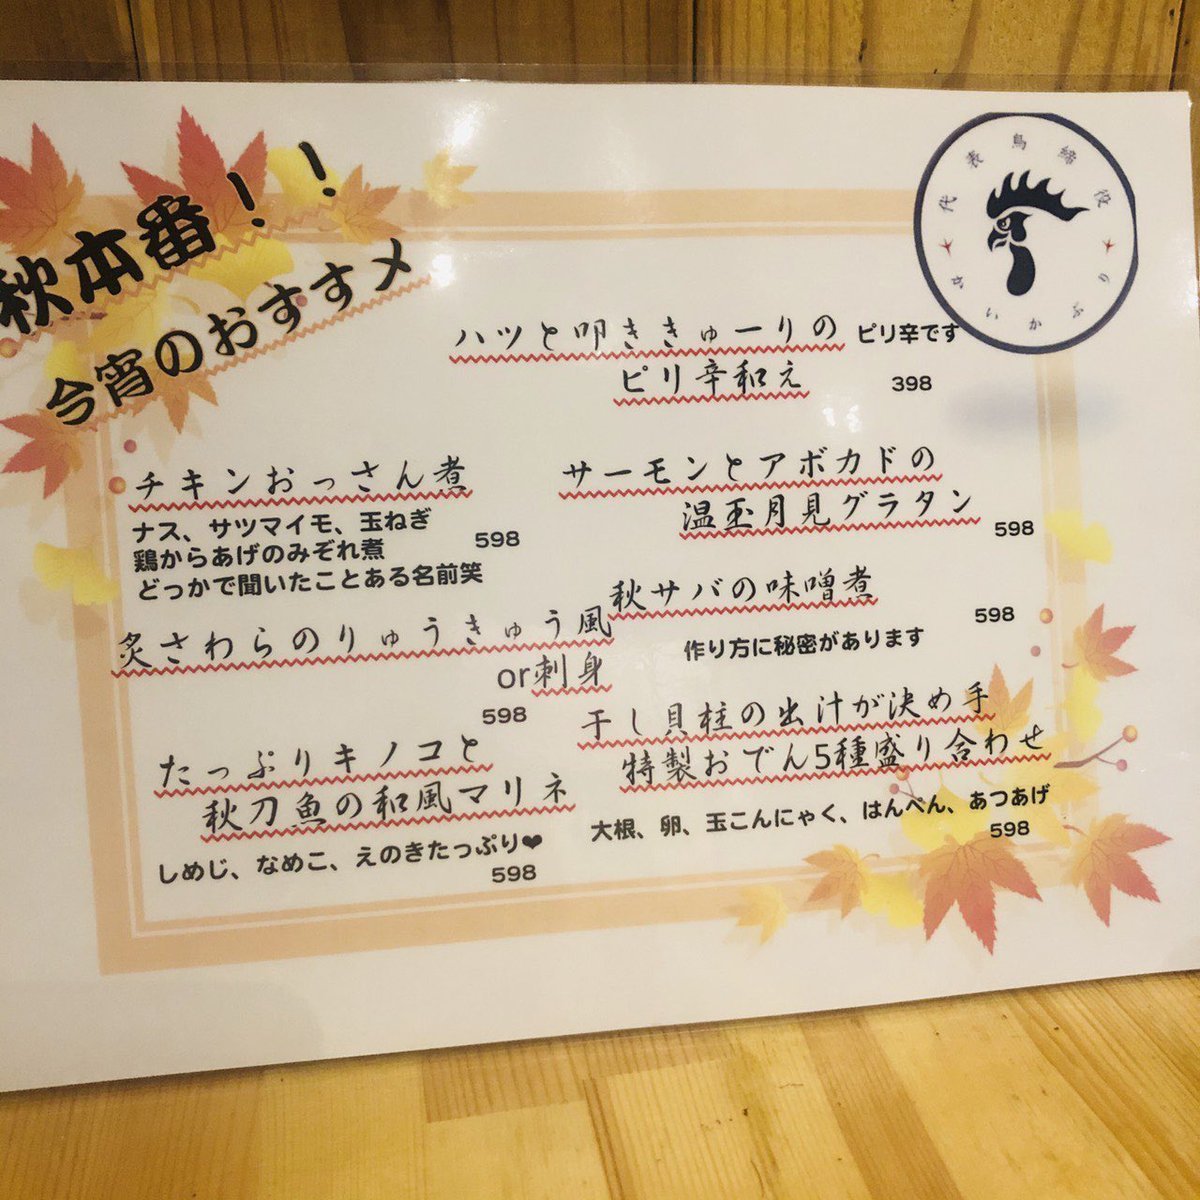 秋本番！！
今宵のおすすメ
代表鳥締役
ハツと叩ききゅーりの
ピリ辛和え
ピリ辛です
398
チキンおっさん煮
ナス、サツマイモ、玉ねぎ
鶏からあげのみぞれ煮
どっかで聞いたことある名前笑
598
サーモンとアボカドの
温玉月見グラタン
598
炙さわらのりゅうきゅう風
or刺身
598
秋サバの味噌煮
598
作り方に秘密があります
たっぷりキノコと
秋刀魚の和風マリネ
しめじ、なめこ、えのきたっぷり❤
598
干し貝柱の出汁が決め手
特製おでん5種盛り合わせ
大根、卵、玉こんにゃく、はんぺん、あつあげ
598